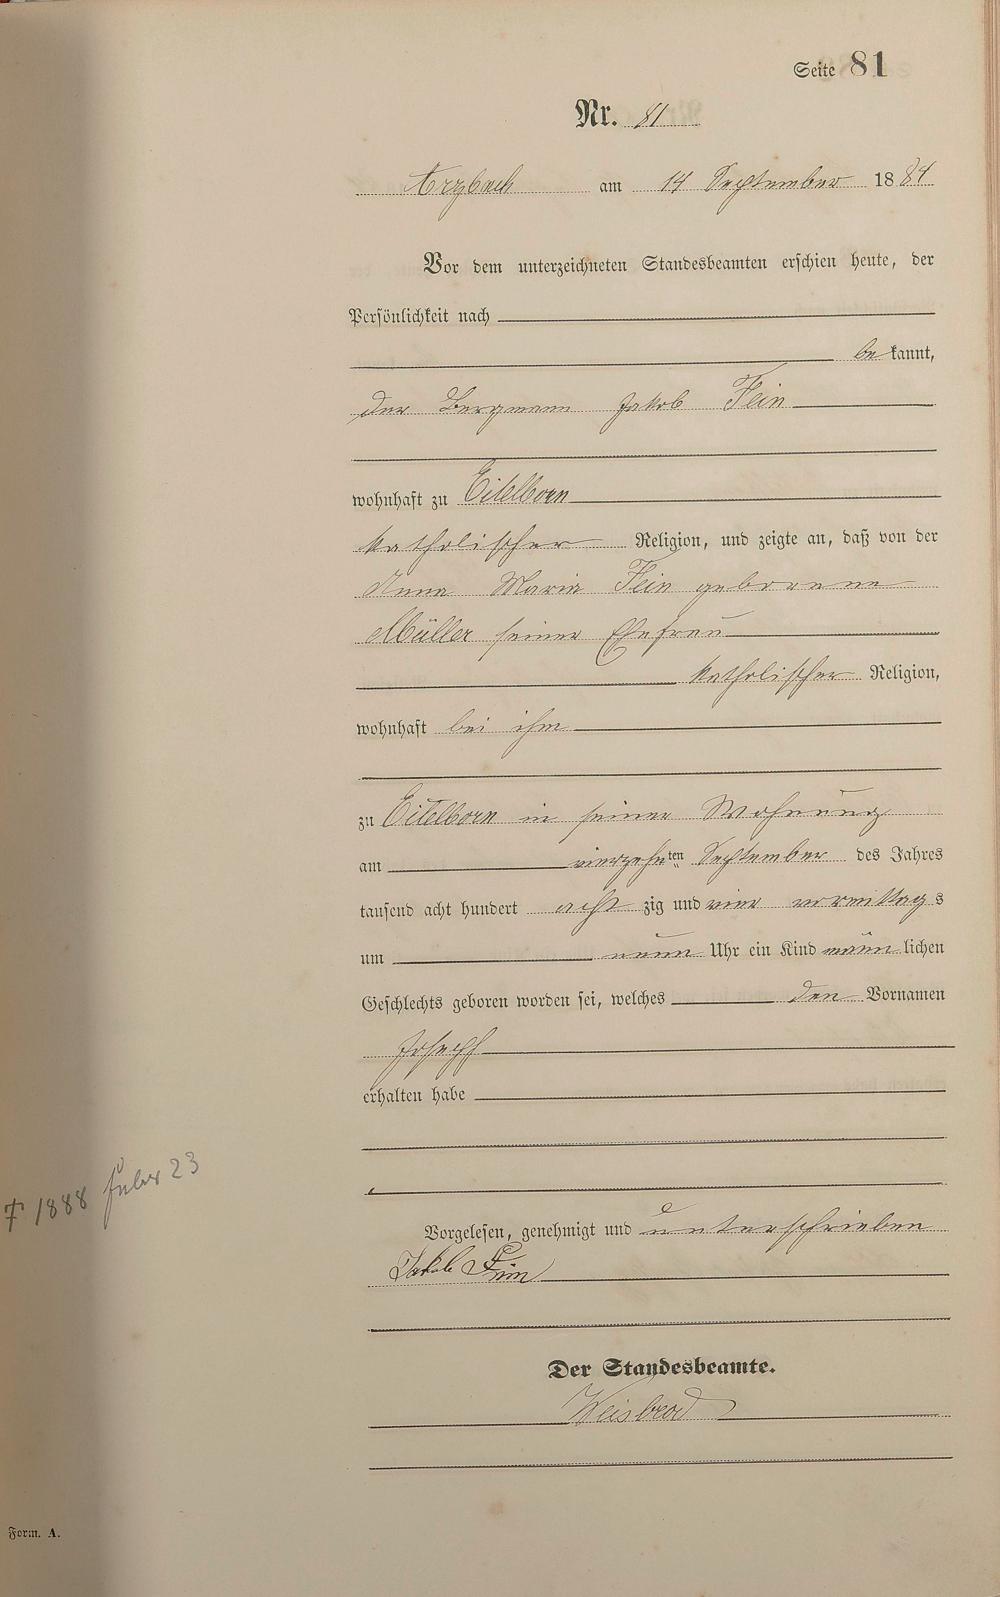 Seite 81
Nr. 81
Arzbach am 14 September 1884
Vor dem unterzeichneten Standesbeamten erschien heute, der
Persönlichkeit nach
bekannt,
der Bergmann Jakob Fein
wohnhaft zu Eitelborn
katholischer Religion, und zeigte an, daß von der
Anna Maria Fein geborene
Müller seiner Ehefrau
katholischer Religion,
wohnhaft bei ihm
zu Eitelborn in seiner Wohnung
am vierzehnten September des Jahres
tausend acht hundert achtzig und vier vormittags
um neun Uhr ein Kind männlichen
Geschlechts geboren worden sei, welches den Vornamen
Joseph
erhalten habe
† 1888 23
Vorgelesen, genehmigt und unterschrieben
Jakob Fein
Der Standesbeamte.
Weisbrod
Form. A.